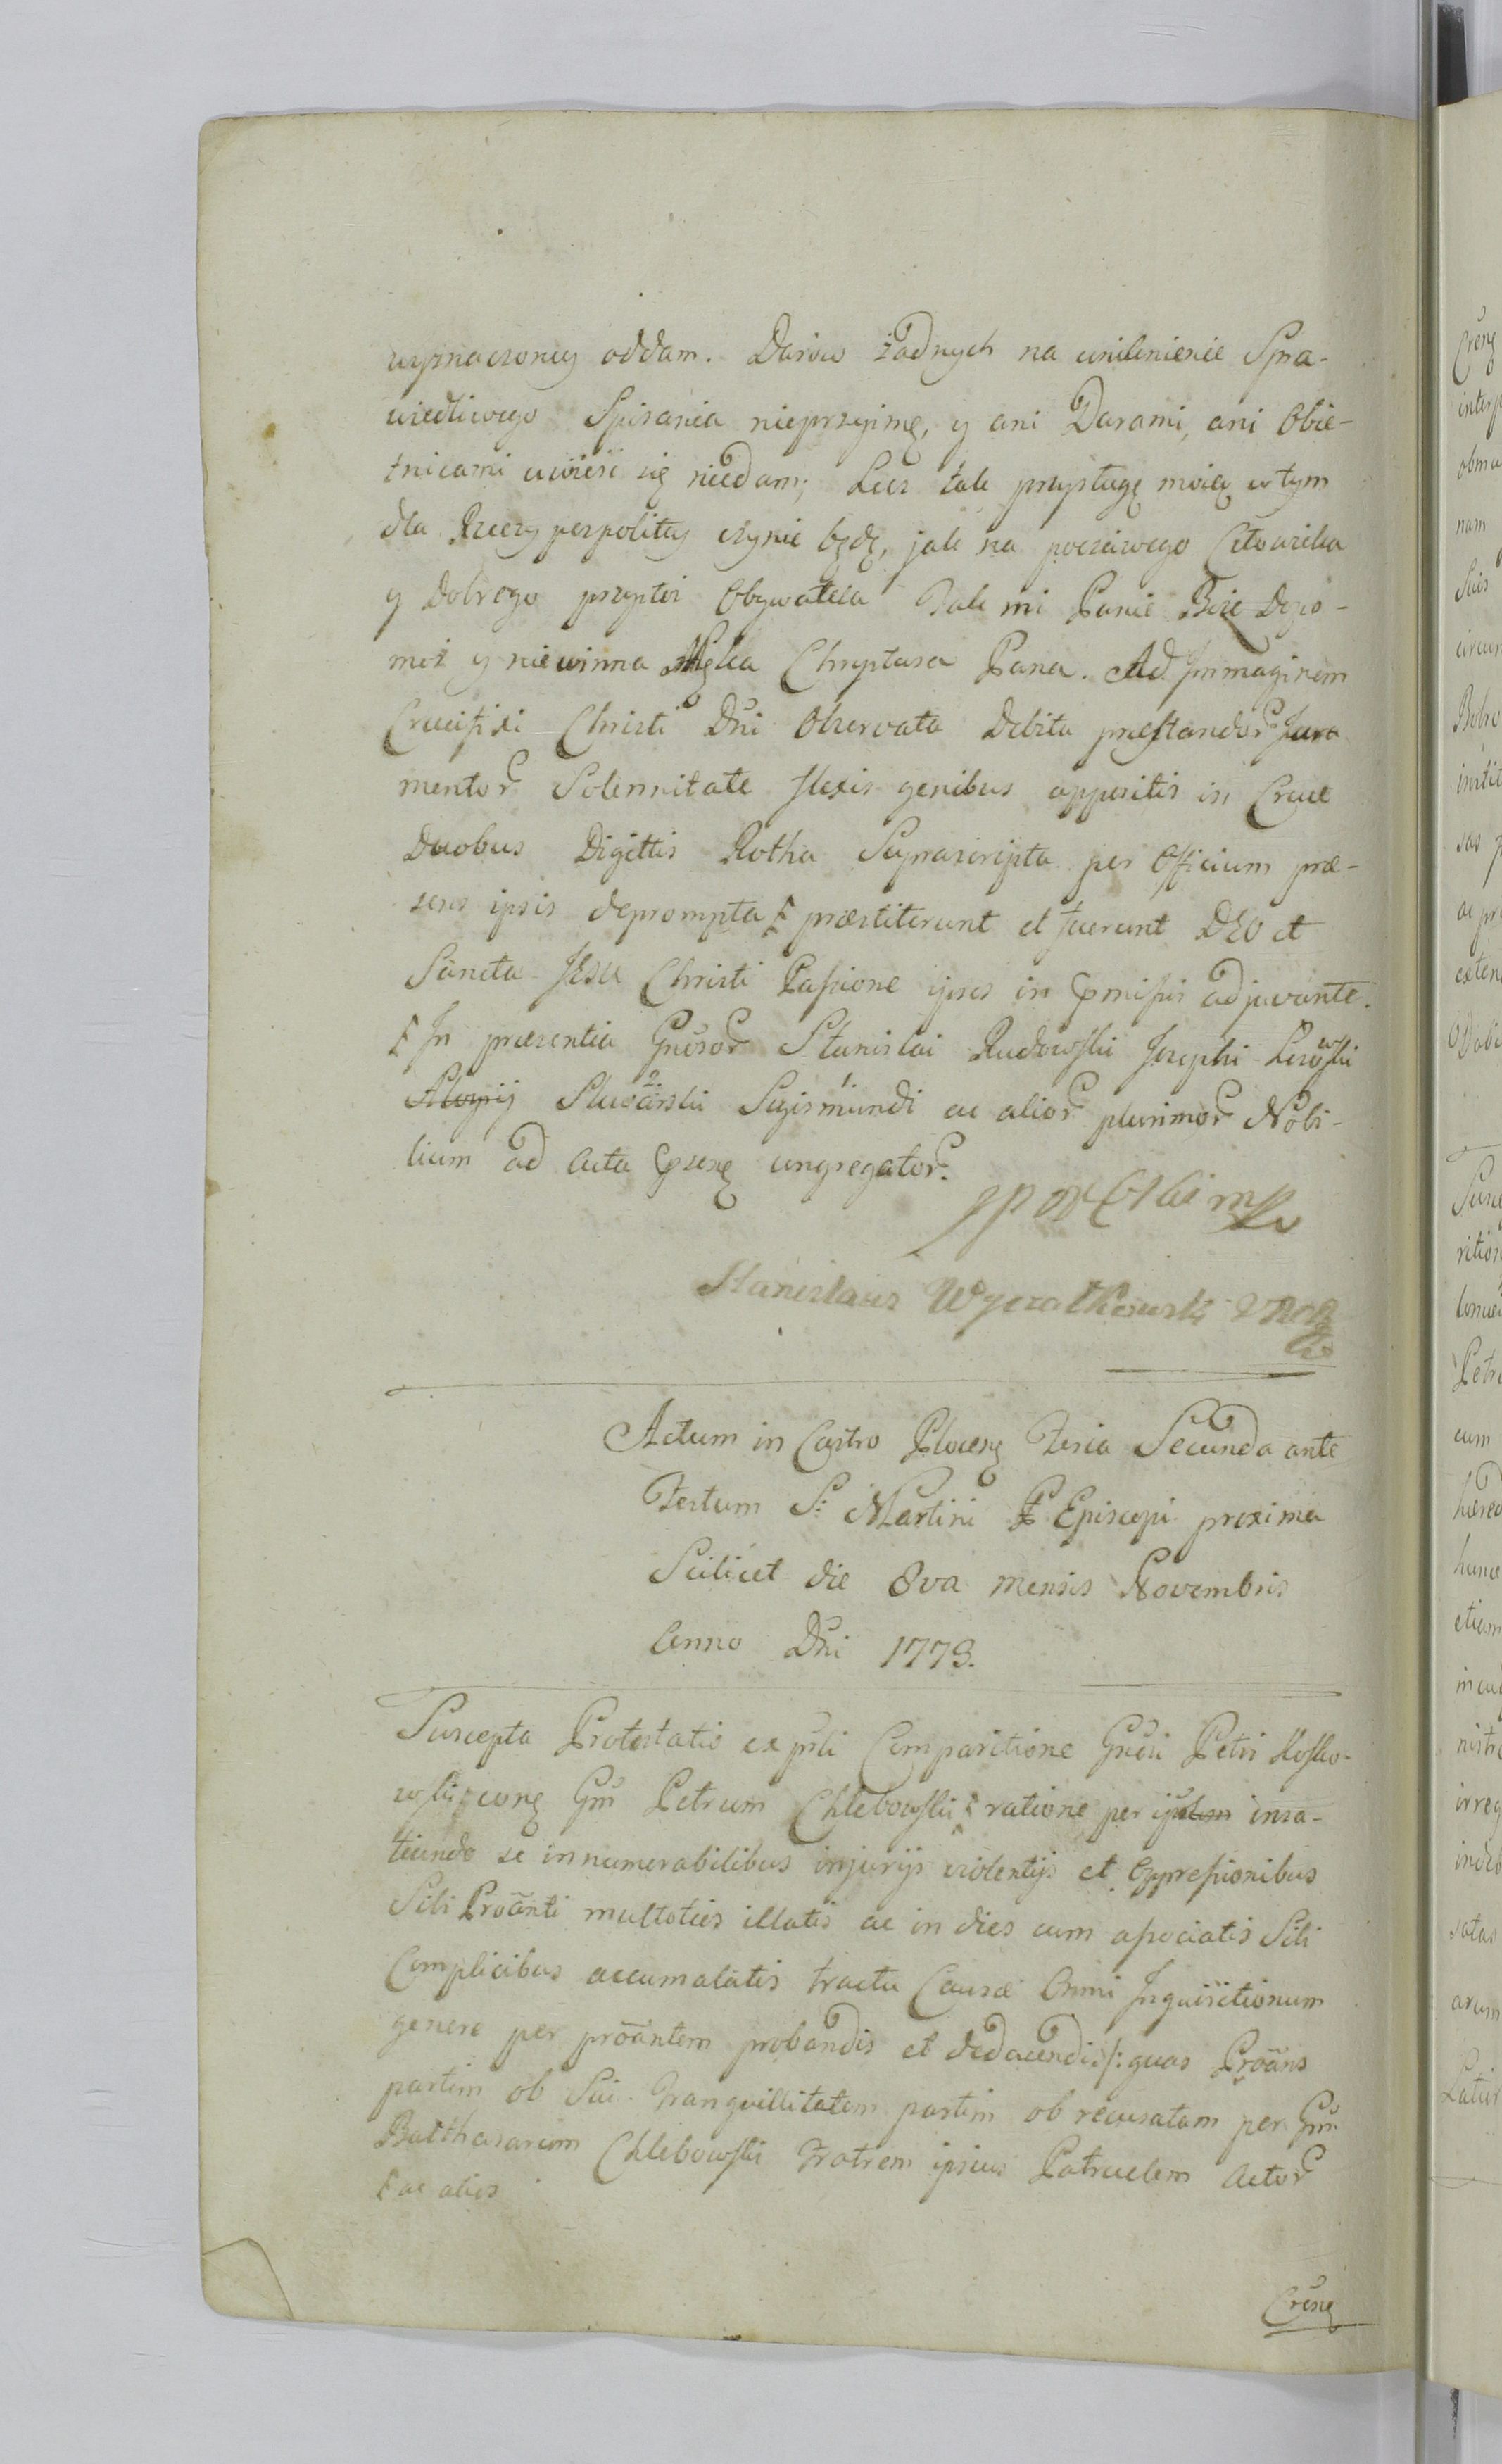 wyznaczoney oddam. Darow żadnych na uchilenie Spra-
wiedliwego Spisania nieprzyimę, y ani Darami, ani Obie-
tnicami uwieść się niedam; Lecz tak przysługę moię w tym
dla Rzeczypospolitey czynić będę, jak na poczciwego Człowieka
y Dobrego przystoi Obywatela Tak mi Panie Boże Dopo-
moż y niewinna Męka Chrystusa Pana. Ad Immaginem
Crucifixi Christi Dni Observata Debita præstandor Jura
mentor Solennitate flexis genibus appositis in Cruce
Duobus Digittis Rotha Suprascripta per Officium præ-
sens ipsis deprompta præstiterunt et fecerunt DEO et
Sancta JESU Christi Passione ipsos in pmissis adjuvante.
In præsentia Gnesor Stanislai Rudowski Josephi
Sigismundi ac alior plurimor Nobi-
lium ad Acta psens congregator.
Stanislaus Wyczalkowski
Actum in Castro Plocens Feria Secunda ante
Festum S: Martini Episcopi proxima
Scilicet die 8va mensis Novembris
Anno Dni 1773.
Suscepta Protestatio ex psti Comparitione Gnesi Petri Kosko-
wski cong Gm Petrum Chlebowski ratione per ipsum insa-
tiando se innumerabilibus injurijs violentijs et Oppressionibus
Sibi Proanti multoties illatis ac in dies cum associatis Sibi
Complicibus accumalatis tractu Causæ Omni Inquisitionum
genere per proantem probandis et deducendis /: quas Proans
partim ob Sui Tranquillitatem partim ob recusatam per Gm
Balthasarum Chlebowski Fratrem ipsius Patruelem Actor
ac alios
Crens
Creng
interp
obmu
nam
Suis
circum
Bobro
instit
sas p
ac pr
exten